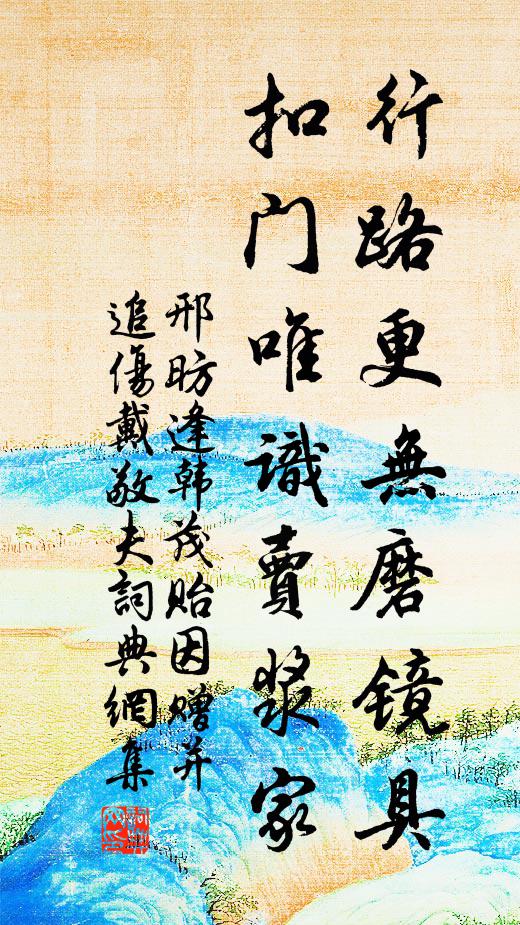 行路更無磨镜具
扣门唯識賣漿家
邢昉逢韩茂贻因赠并
追傷戴敬夫詞典網集